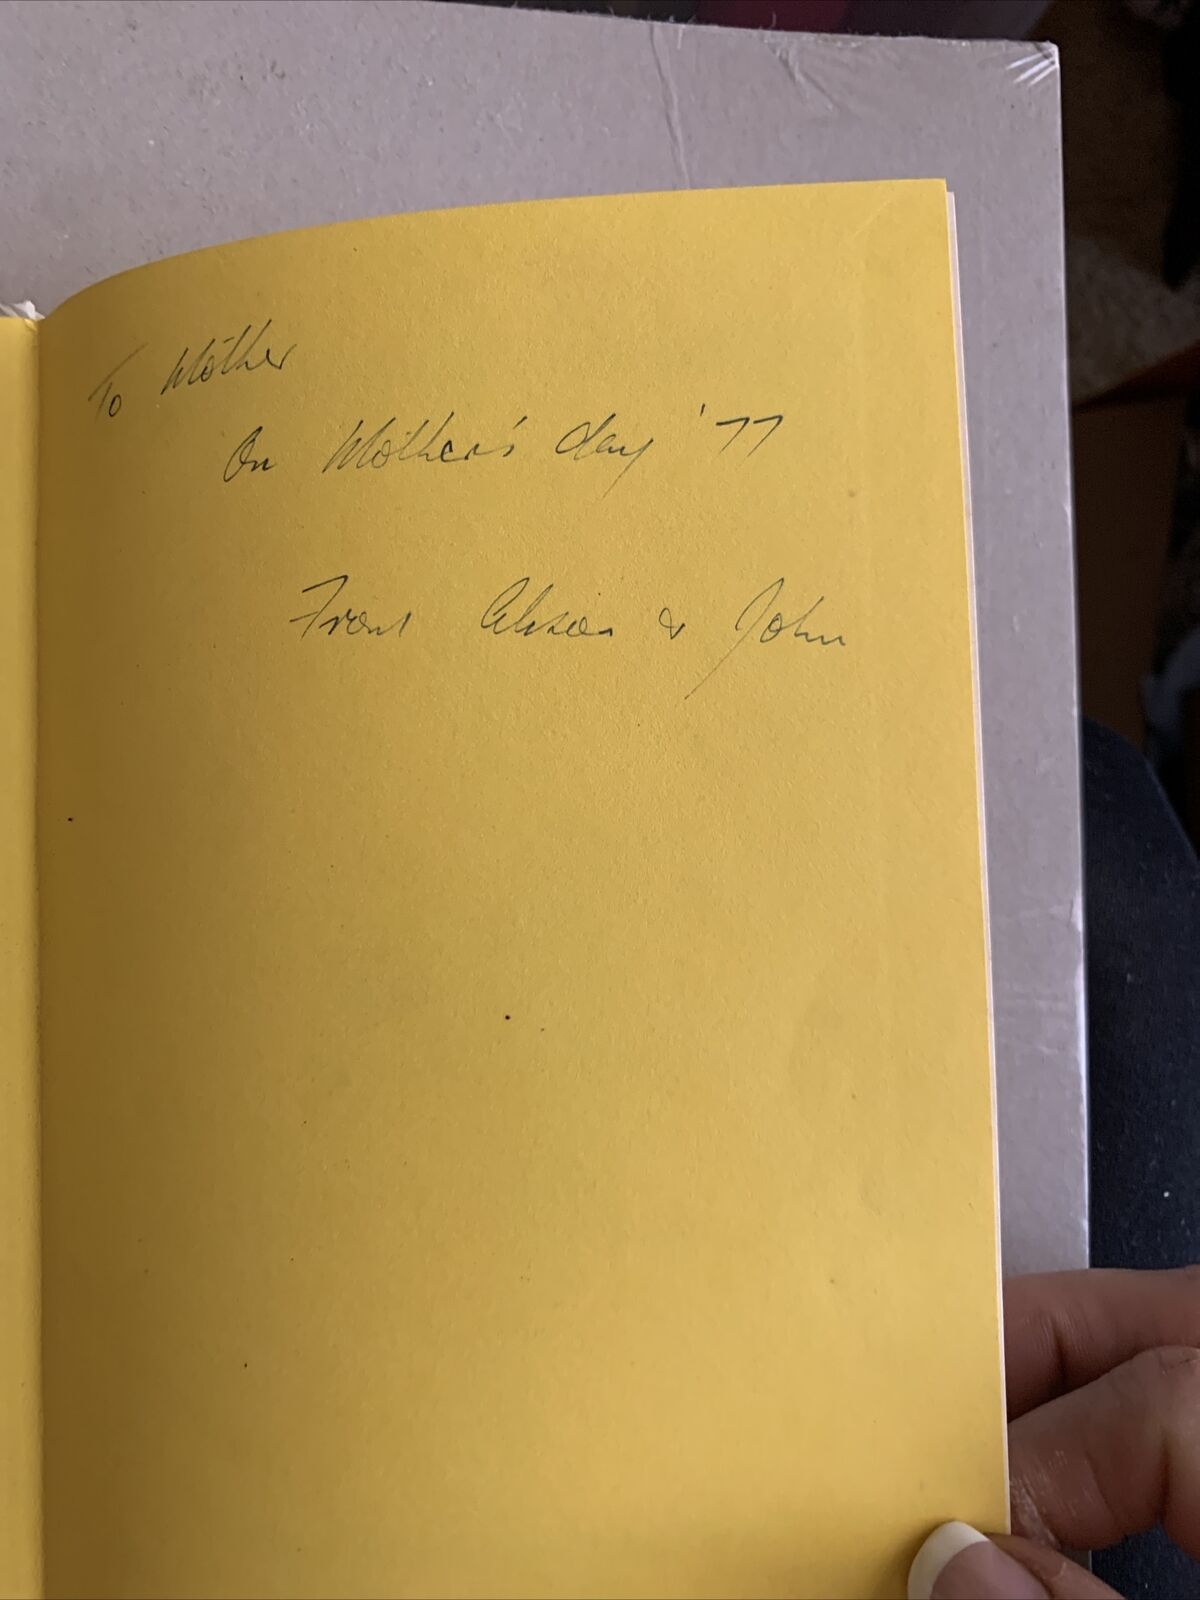 To Mother
On Mother's day '77
From & John